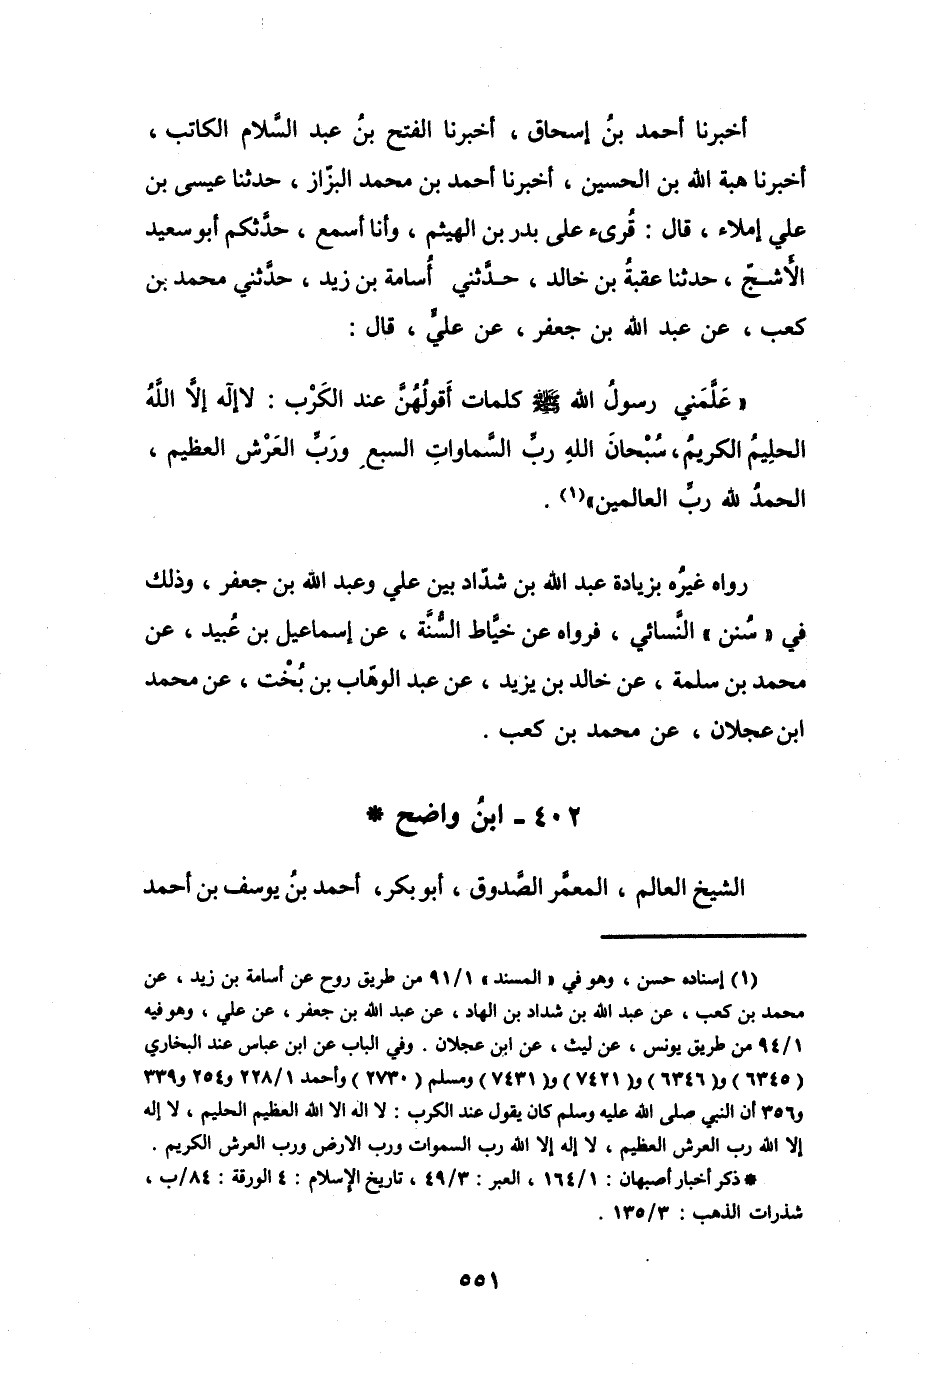 أخبرنا أحمد بنُ إسحاق ، أخبرنا الفتح بنُ عبد السَّلام الكاتب ،
أخبرنا هبة الله بن الحسين ، أخبرنا أحمد بن محمد البزّاز ، حدثنا عيسى بن
علي إملاء ، قال : قُرىء على بدر بن الهيثم ، وأنا أسمع ، حدَّثكم أبو سعيد
الأَشــجّ ، حدثنا عقبةُ بن خالد ، حـدَّثني أُسامة بن زيد ، حدَّثني محمد بن
كعب ، عن عبد الله بن جعفر ، عن عليٍّ ، قال :
« عَلَّمَني رسولُ الله ﷺ كلمات أَقولُهُنَّ عند الكَرْب : لاإلٰه إلاَّ اللَّهُ
الحلِيمُ الكريمُ، سُبْحانَ اللهِ ربِّ السَّماواتِ السبعِ ورَبِّ العَرْش العظيم ،
الحمدُ لله ربِّ العالمين»(١) .
رواه غيرُه بزيادة عبد الله بن شدّاد بين علي وعبد الله بن جعفر ، وذلك
في « سُنن » النَّسائي ، فرواه عن خيَّاط السُّنَّة ، عن إسماعيل بن عُبيد ، عن
محمد بن سلمة ، عن خالد بن يزيد ، عن عبد الوهّاب بن بُخْت ، عن محمد
ابن عجلان ، عن محمد بن كعب .
٤٠٢ - ابنُ واضح *
الشيخ العالم ، المعمَّر الصَّدوق ، أبو بكر، أحمد بنُ يوسف بن أحمد
(١) إسناده حسن ، وهو في « المسند » ٩١/١ من طريق روح عن أسامة بن زيد ، عن
محمد بن كعب ، عن عبد الله بن شداد بن الهاد ، عن عبد الله بن جعفر ، عن علي ، وهو فيه
٩٤/١ من طريق يونس ، عن ليث ، عن ابن عجلان . وفي الباب عن ابن عباس عند البخاري
( ٦٣٤٥ ) و( ٦٣٤٦ ) و( ٧٤٢١ ) و( ٧٤٣١ ) ومسلم ( ٢٧٣٠ ) وأحمد ٢٢٨/١ و٢٥٤ و٣٣٩
و٣٥٦ أن النبي صلى الله عليه وسلم كان يقول عند الكرب : لا اله الا الله العظيم الحليم ، لا إله
إلا الله رب العرش العظيم ، لا إله إلا الله رب السموات ورب الارض ورب العرش الكريم .
* ذكر أخبار أصبهان : ١٦٤/١ ، العبر : ٤٩/٣ ، تاريخ الإسلام : ٤ الورقة : ٨٤/ب ،
شذرات الذهب : ١٣٥/٣ .
٥٥١